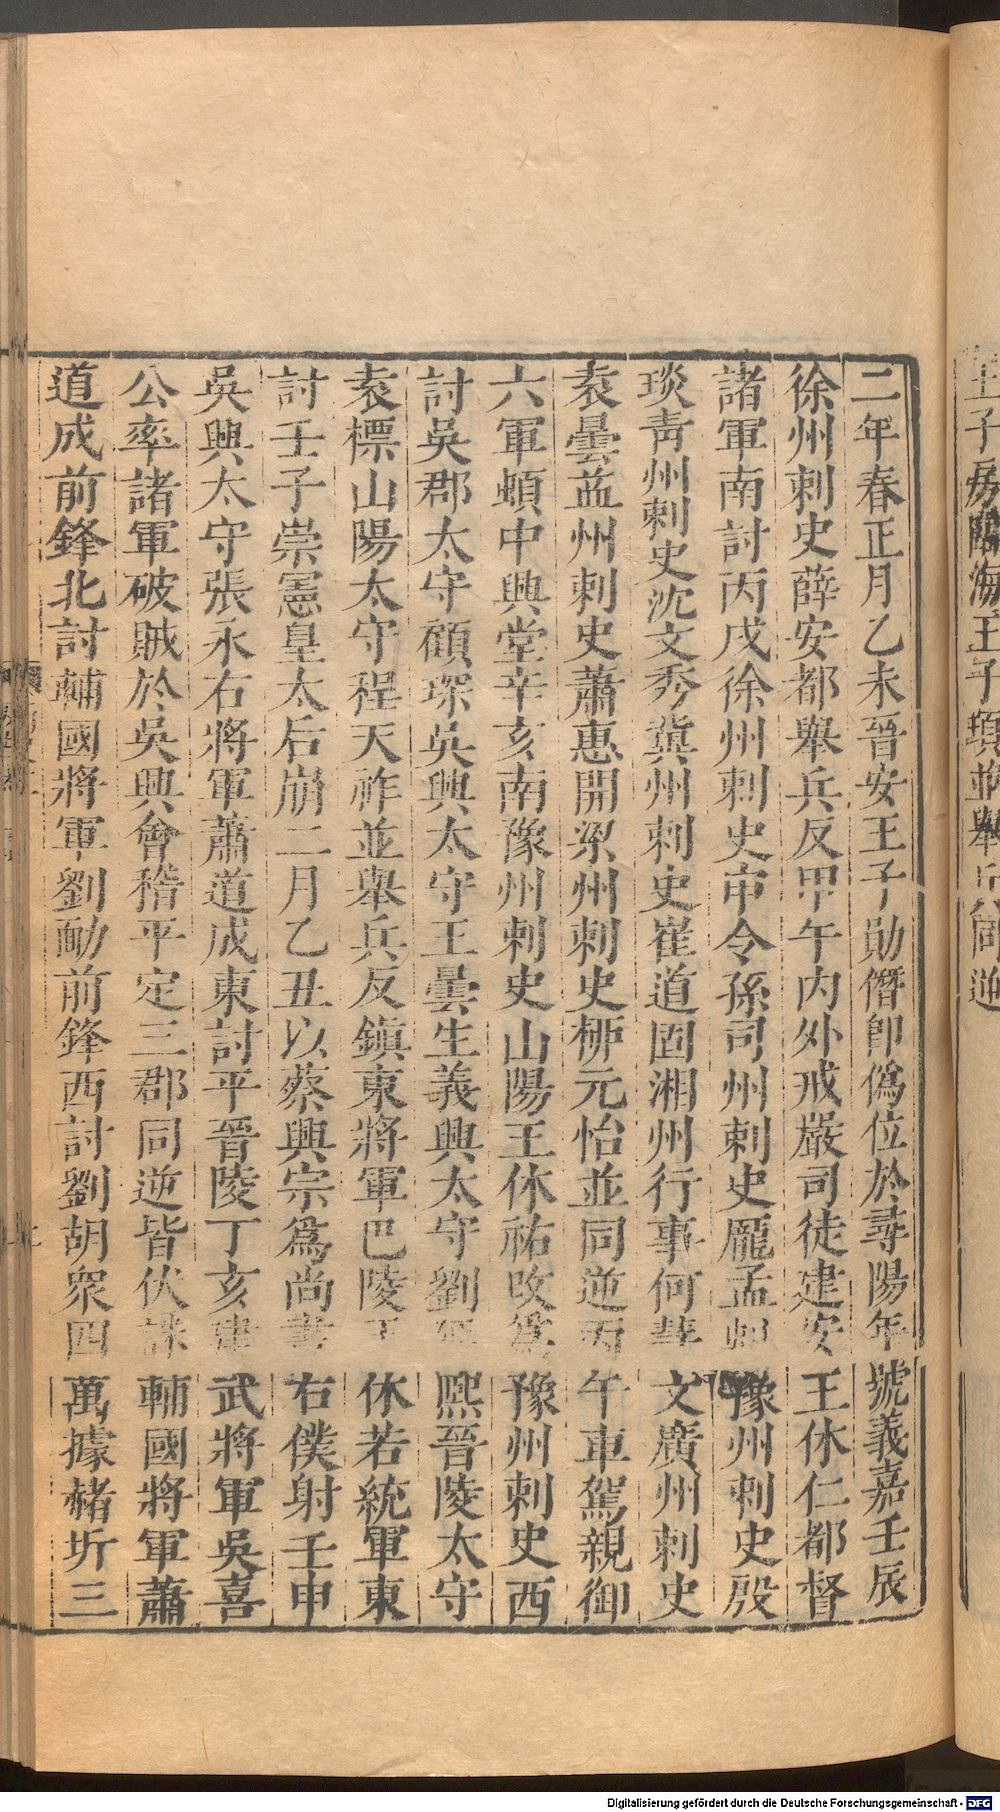 王子房臨海王子頊並舉兵同逆
二年春正月乙未晉安王子勛僭卽僞位於尋陽年號義嘉壬辰
徐州刺史薛安都舉兵反甲午內外戒嚴司徒建安王休仁都督
諸軍南討丙戌徐州刺史申令孫司州刺史龐孟虯豫州刺史殷
琰靑州刺史沈文秀冀州刺史崔道固湘州行事何慧文廣州刺史
袁曇益州刺史蕭惠開梁州刺史栁元怡並同逆丙午車駕親御
六軍頓中興堂辛亥南豫州刺史山陽王休祐攺爲豫州刺史西
討吳郡太守顧琛吳興太守王曇生義興太守劉延熙晉陵太守
袁標山陽太守程天祚並舉兵反鎮東將軍巴陵王休若統軍東
討壬子崇憲皇太后崩二月乙丑以蔡興宗爲尚書右僕射壬申
吳興太守張永右將軍蕭道成東討平晉陵丁亥建武將軍吳喜
公率諸軍破賊於吳興會稽平定三郡同逆皆伏誅輔國將軍蕭
道成前鋒北討輔國將軍劉勔前鋒西討劉胡衆四萬據赭圻三
Digitalisierung gefördert durch die Deutsche Forschungsgemeinschaft - DFG